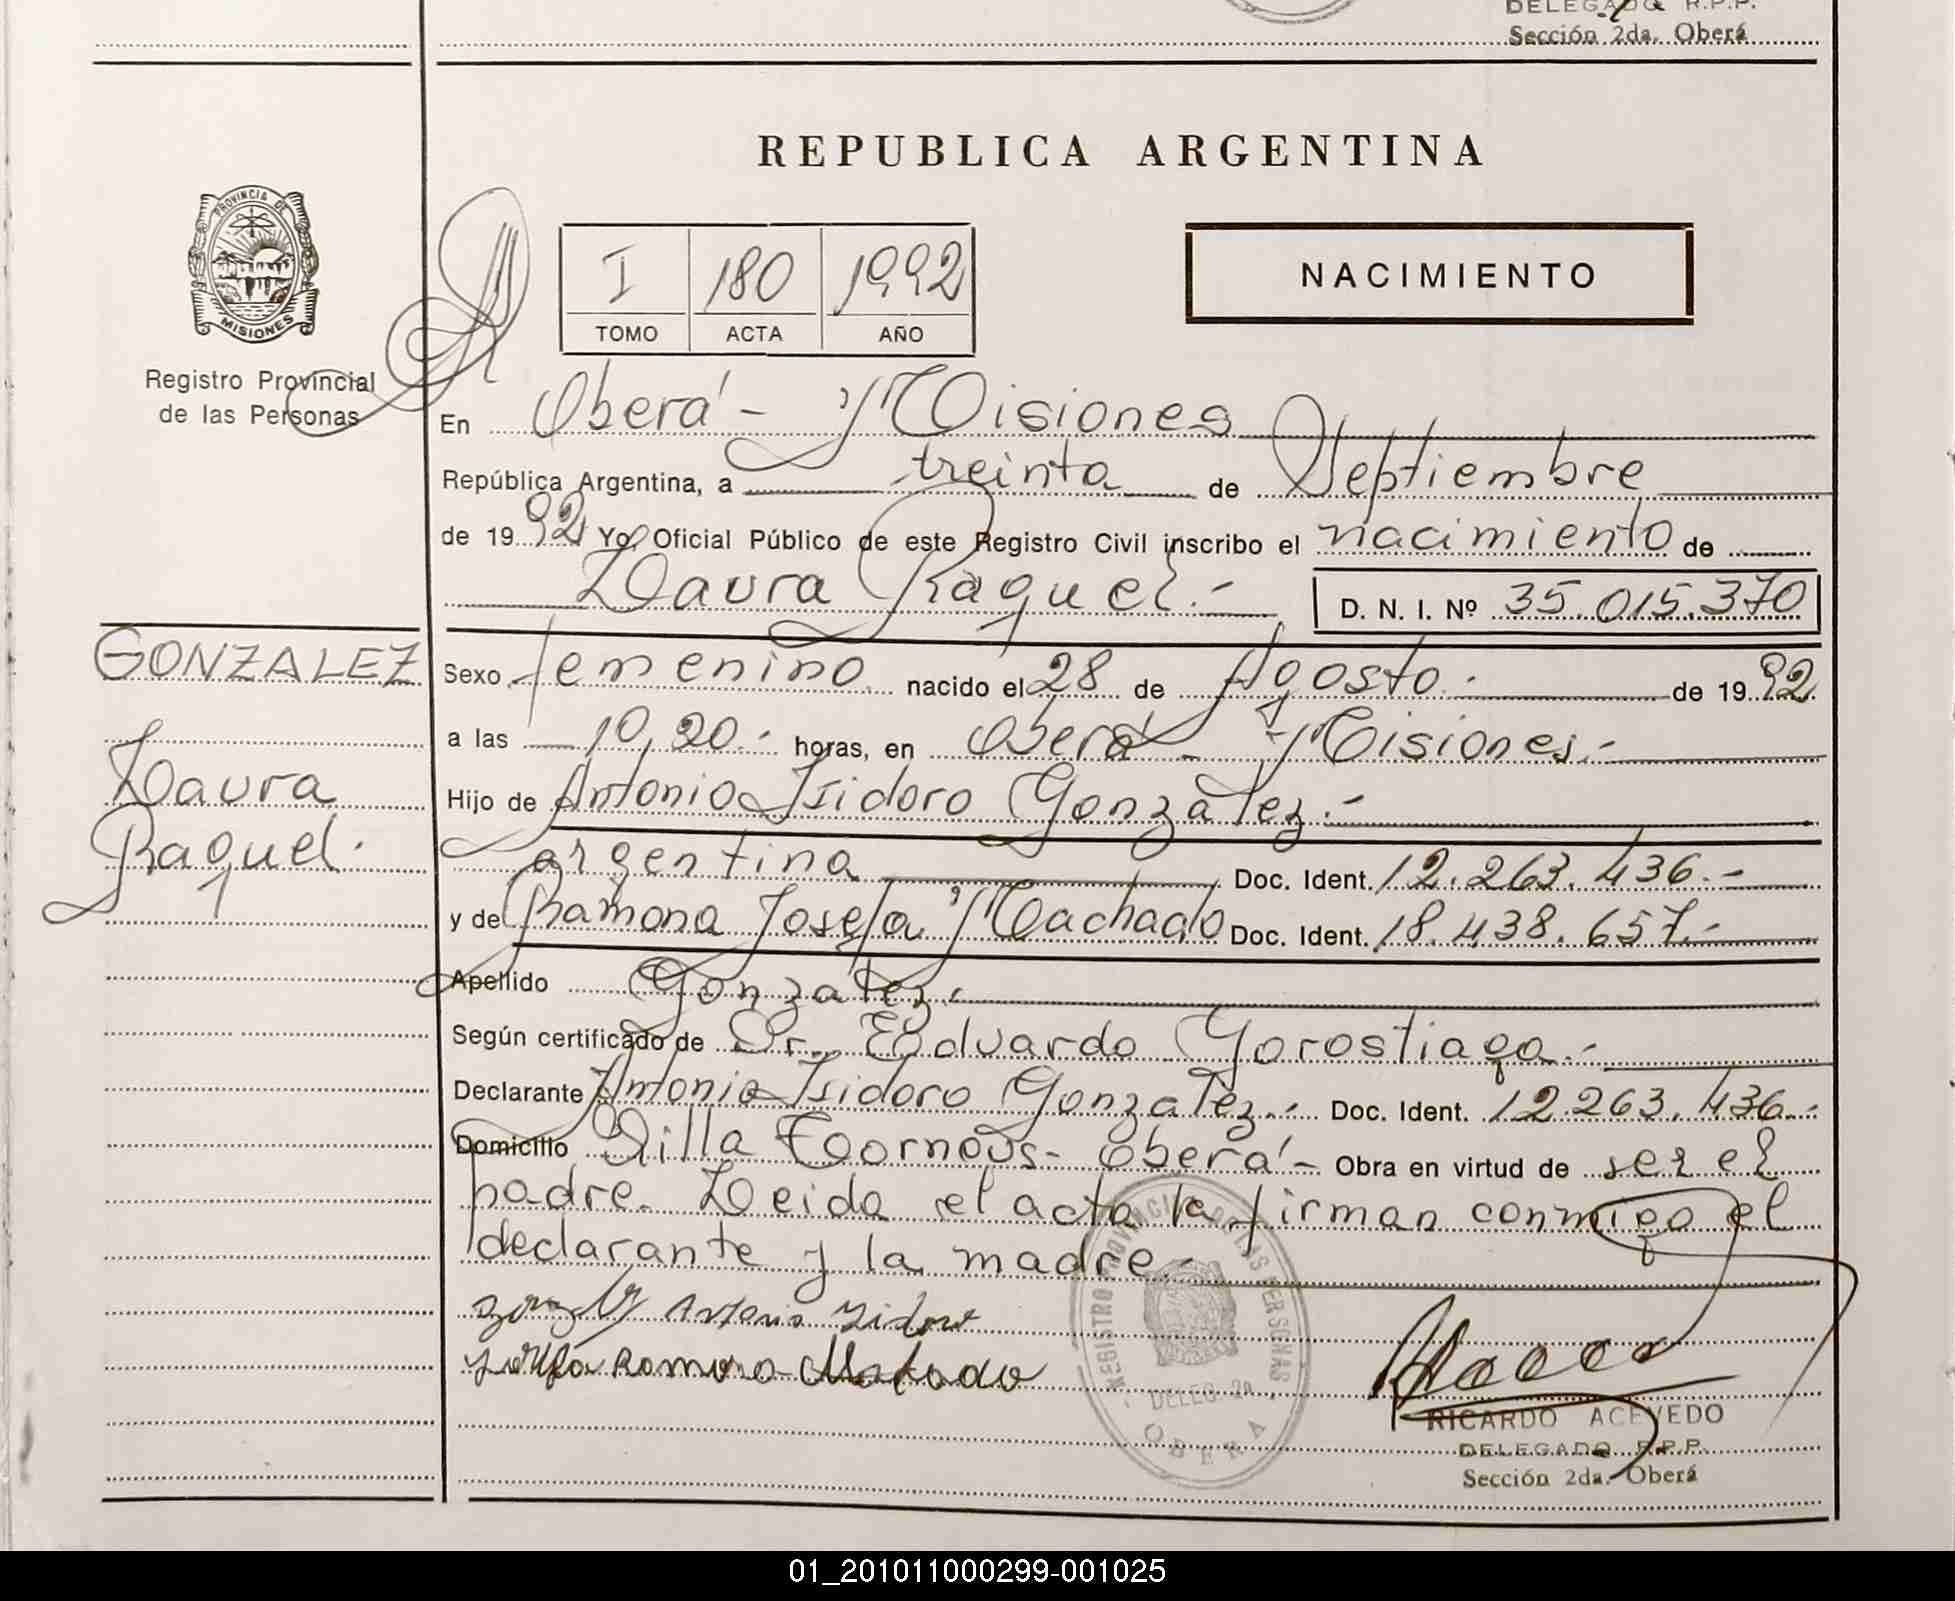 DELEGADO R.P.P.
Sección 2da. Oberá
REPUBLICA ARGENTINA
PROVINCIA DE
MISIONES
Registro Provincial
de las Personas
I 180 1992
TOMO ACTA AÑO
NACIMIENTO
En Oberá - Misiones
República Argentina, a treinta de Septiembre
de 1992 Yo, Oficial Público de este Registro Civil inscribo el nacimiento de
Laura Raquel.-
D. N. I. Nº 35.015.370
GONZALEZ
Laura
Raquel.
Sexo femenino nacido el 28 de Agosto.- de 1992.
a las 10,20.- horas, en Oberá - Misiones.-
Hijo de Antonio Isidoro Gonzalez.-
argentina Doc. Ident. 12.263.436.-
y de Ramona Josefa Machado Doc. Ident. 18.438.657.-
Apellido Gonzalez.-
Según certificado de Dr. Eduardo Gorostiaga.-
Declarante Antonio Isidoro Gonzalez.- Doc. Ident. 12.263.436.-
Domicilio Villa - Oberá - Obra en virtud de ser el
padre. Leida el acta la firman conmigo el
declarante y la madre.-
Antonio
Josefa Ramona
REGISTRO PROVINCIAL DE LAS PERSONAS
DELEG. 2a
OBERA
RICARDO ACEVEDO
DELEGADO R.P.P.
Sección 2da. Oberá
01_201011000299-001025